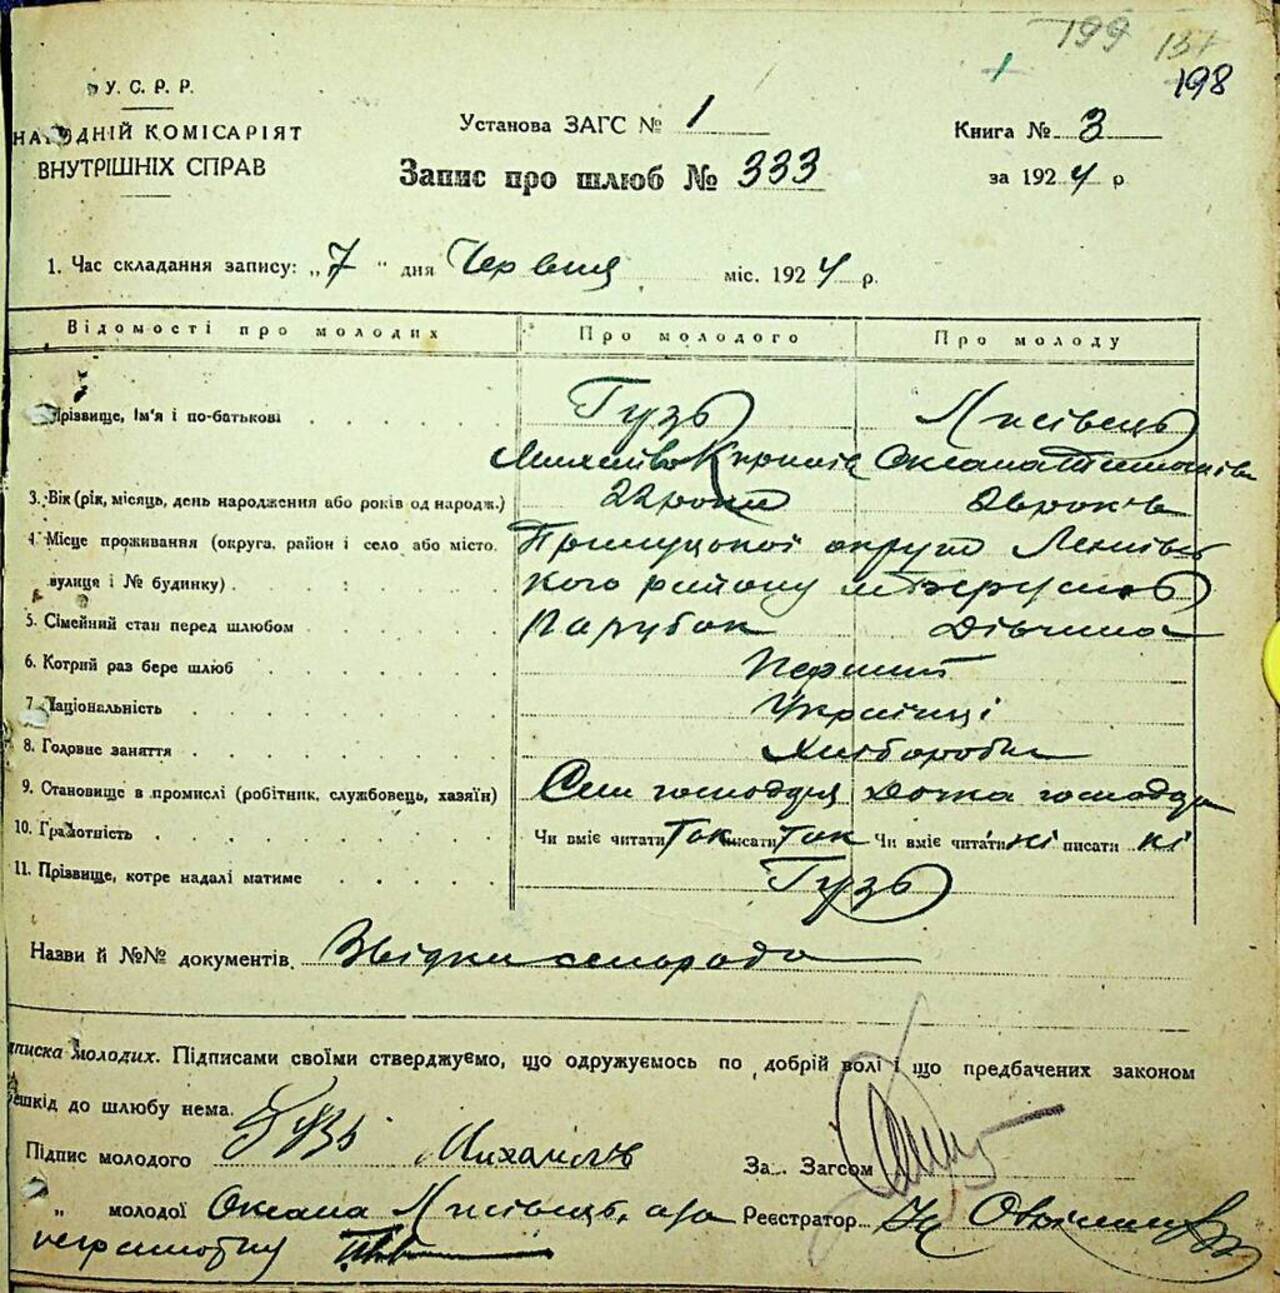 199 137
198
У. С. Р. Р.
НАРОДНІЙ КОМІСАРІЯТ
ВНУТРІШНІХ СПРАВ
Установа ЗАГС № 1
Книга № 3
Запис про шлюб № 333
за 1924 р
1. Час складання запису: „7" дня Червня міс. 1924 р.
Відомості про молодих Про молодого Про молоду
Прізвище, Ім'я і по-батькові Гузь Лисівець
Михайло Оксана
3. Вік (рік, місяць, день народження або років од народж.) 22 роки 26 років
4. Місце проживання (округа, район і село або місто. Прилуцької округи Леснівсь
вулиця і № будинку) кого району
5. Сімейний стан перед шлюбом Парубок Дівчина
6. Котрий раз бере шлюб Перший
7. Національність Українці
8. Головне заняття Хлібороби
9. Становище в промислі (робітник, службовець, хазяїн) Син господаря Дочка господаря
10. Грамотність Чи вміє читати Так писати Так Чи вміє читати ні писати ні
11. Прізвище, котре надалі матиме Гузь
Назви й №№ документів. Звідки сільрада
писка молодих. Підписами своїми стверджуємо, що одружуємось по добрій волі і що предбачених законом
ешкід до шлюбу нема.
Підпис молодого Гузь Михайль За Загсом
„ молодої Оксана Лисівець, а за Реєстратор
неграмотну